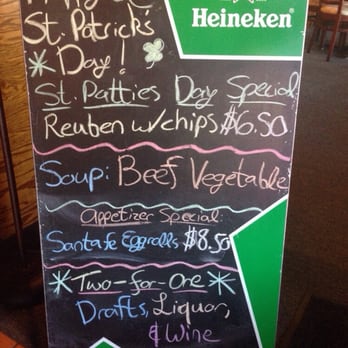 Happy
St. Patrick's
Day!
Heineken
St. Patties Day Special
Reuben w/chips $6.50
Soup: Beef Vegetable
Appetizer Special:
Santa fe Eggrolls $8.50
Two-for-One
Drafts, Liquor,
& Wine